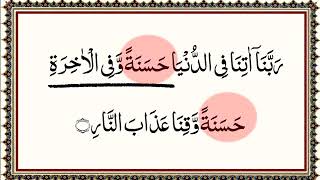 رَبَّنَآ اٰتِنَا فِى الدُّنْيَا حَسَنَةً وَّفِى الْاٰخِرَةِ
حَسَنَةً وَّقِنَا عَذَابَ النَّارِ